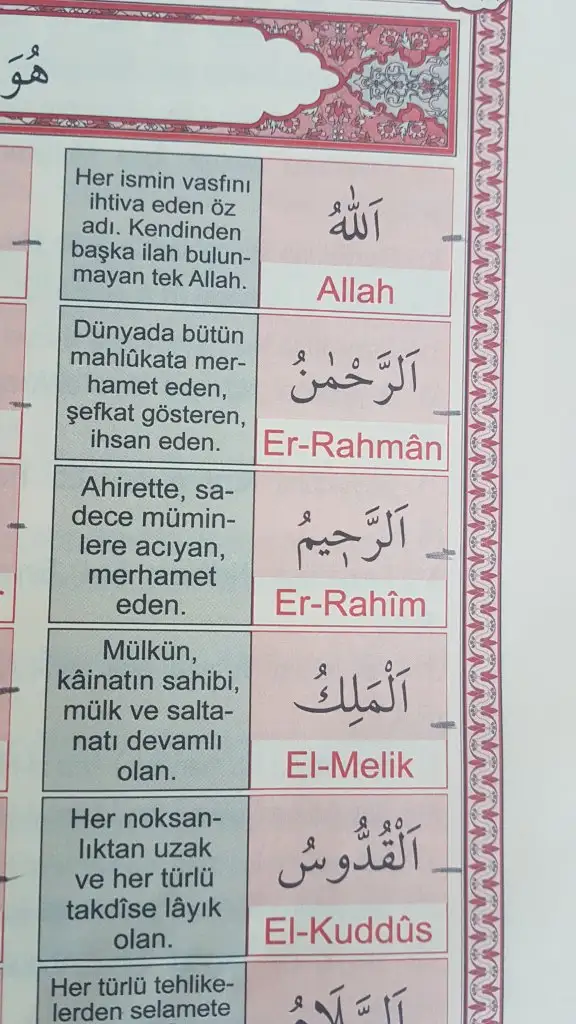 هُوَ
اَللّٰهُ
Allah
Her ismin vasfını
ihtiva eden öz
adı. Kendinden
başka ilah bulun-
mayan tek Allah.
اَلرَّحْمٰنُ
Er-Rahmân
Dünyada bütün
mahlûkata mer-
hamet eden,
şefkat gösteren,
ihsan eden.
اَلرَّحِيمُ
Er-Rahîm
Ahirette, sa-
dece mümin-
lere acıyan,
merhamet
eden.
اَلْمَلِكُ
El-Melik
Mülkün,
kâinatın sahibi,
mülk ve salta-
natı devamlı
olan.
اَلْقُدُّوسُ
El-Kuddûs
Her noksan-
lıktan uzak
ve her türlü
takdîse lâyık
olan.
اَلسَّلَامُ
Her türlü tehlike-
lerden selamete